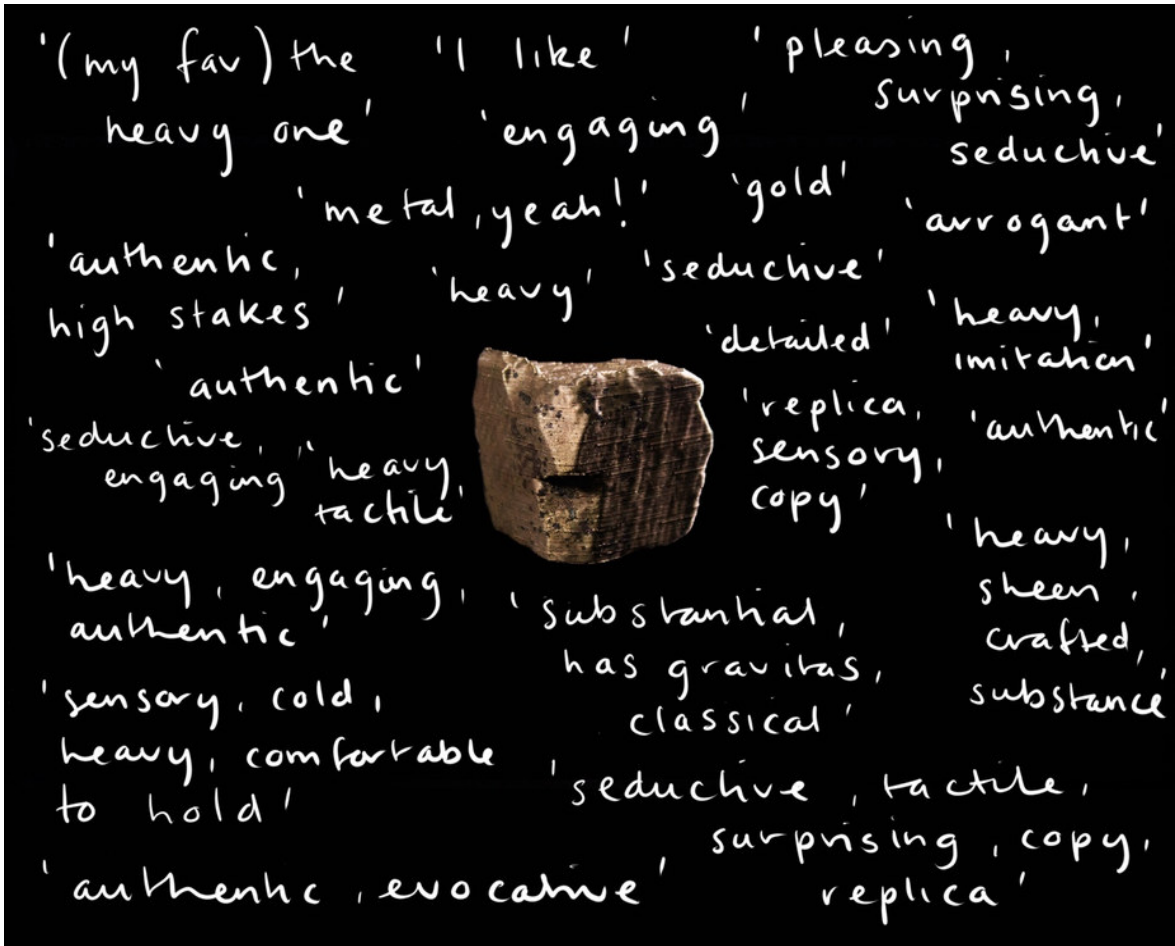 '(my fav) the
heavy one'
'I like'
'engaging'
'pleasing,
surprising,
seductive'
'metal, yeah!'
'gold'
'arrogant'
'authentic,
high stakes'
'heavy'
'seductive'
'detailed'
'heavy,
imitation'
'authentic'
'replica,
sensory,
copy'
'authentic'
'seductive,
engaging'
'heavy,
tactile'
'heavy, engaging,
authentic'
'substantial,
has gravitas,
classical'
'heavy,
sheen,
crafted,
substance'
'sensory, cold,
heavy, comfortable
to hold'
'seductive, tactile,
surprising, copy,
replica'
'authentic, evocative'